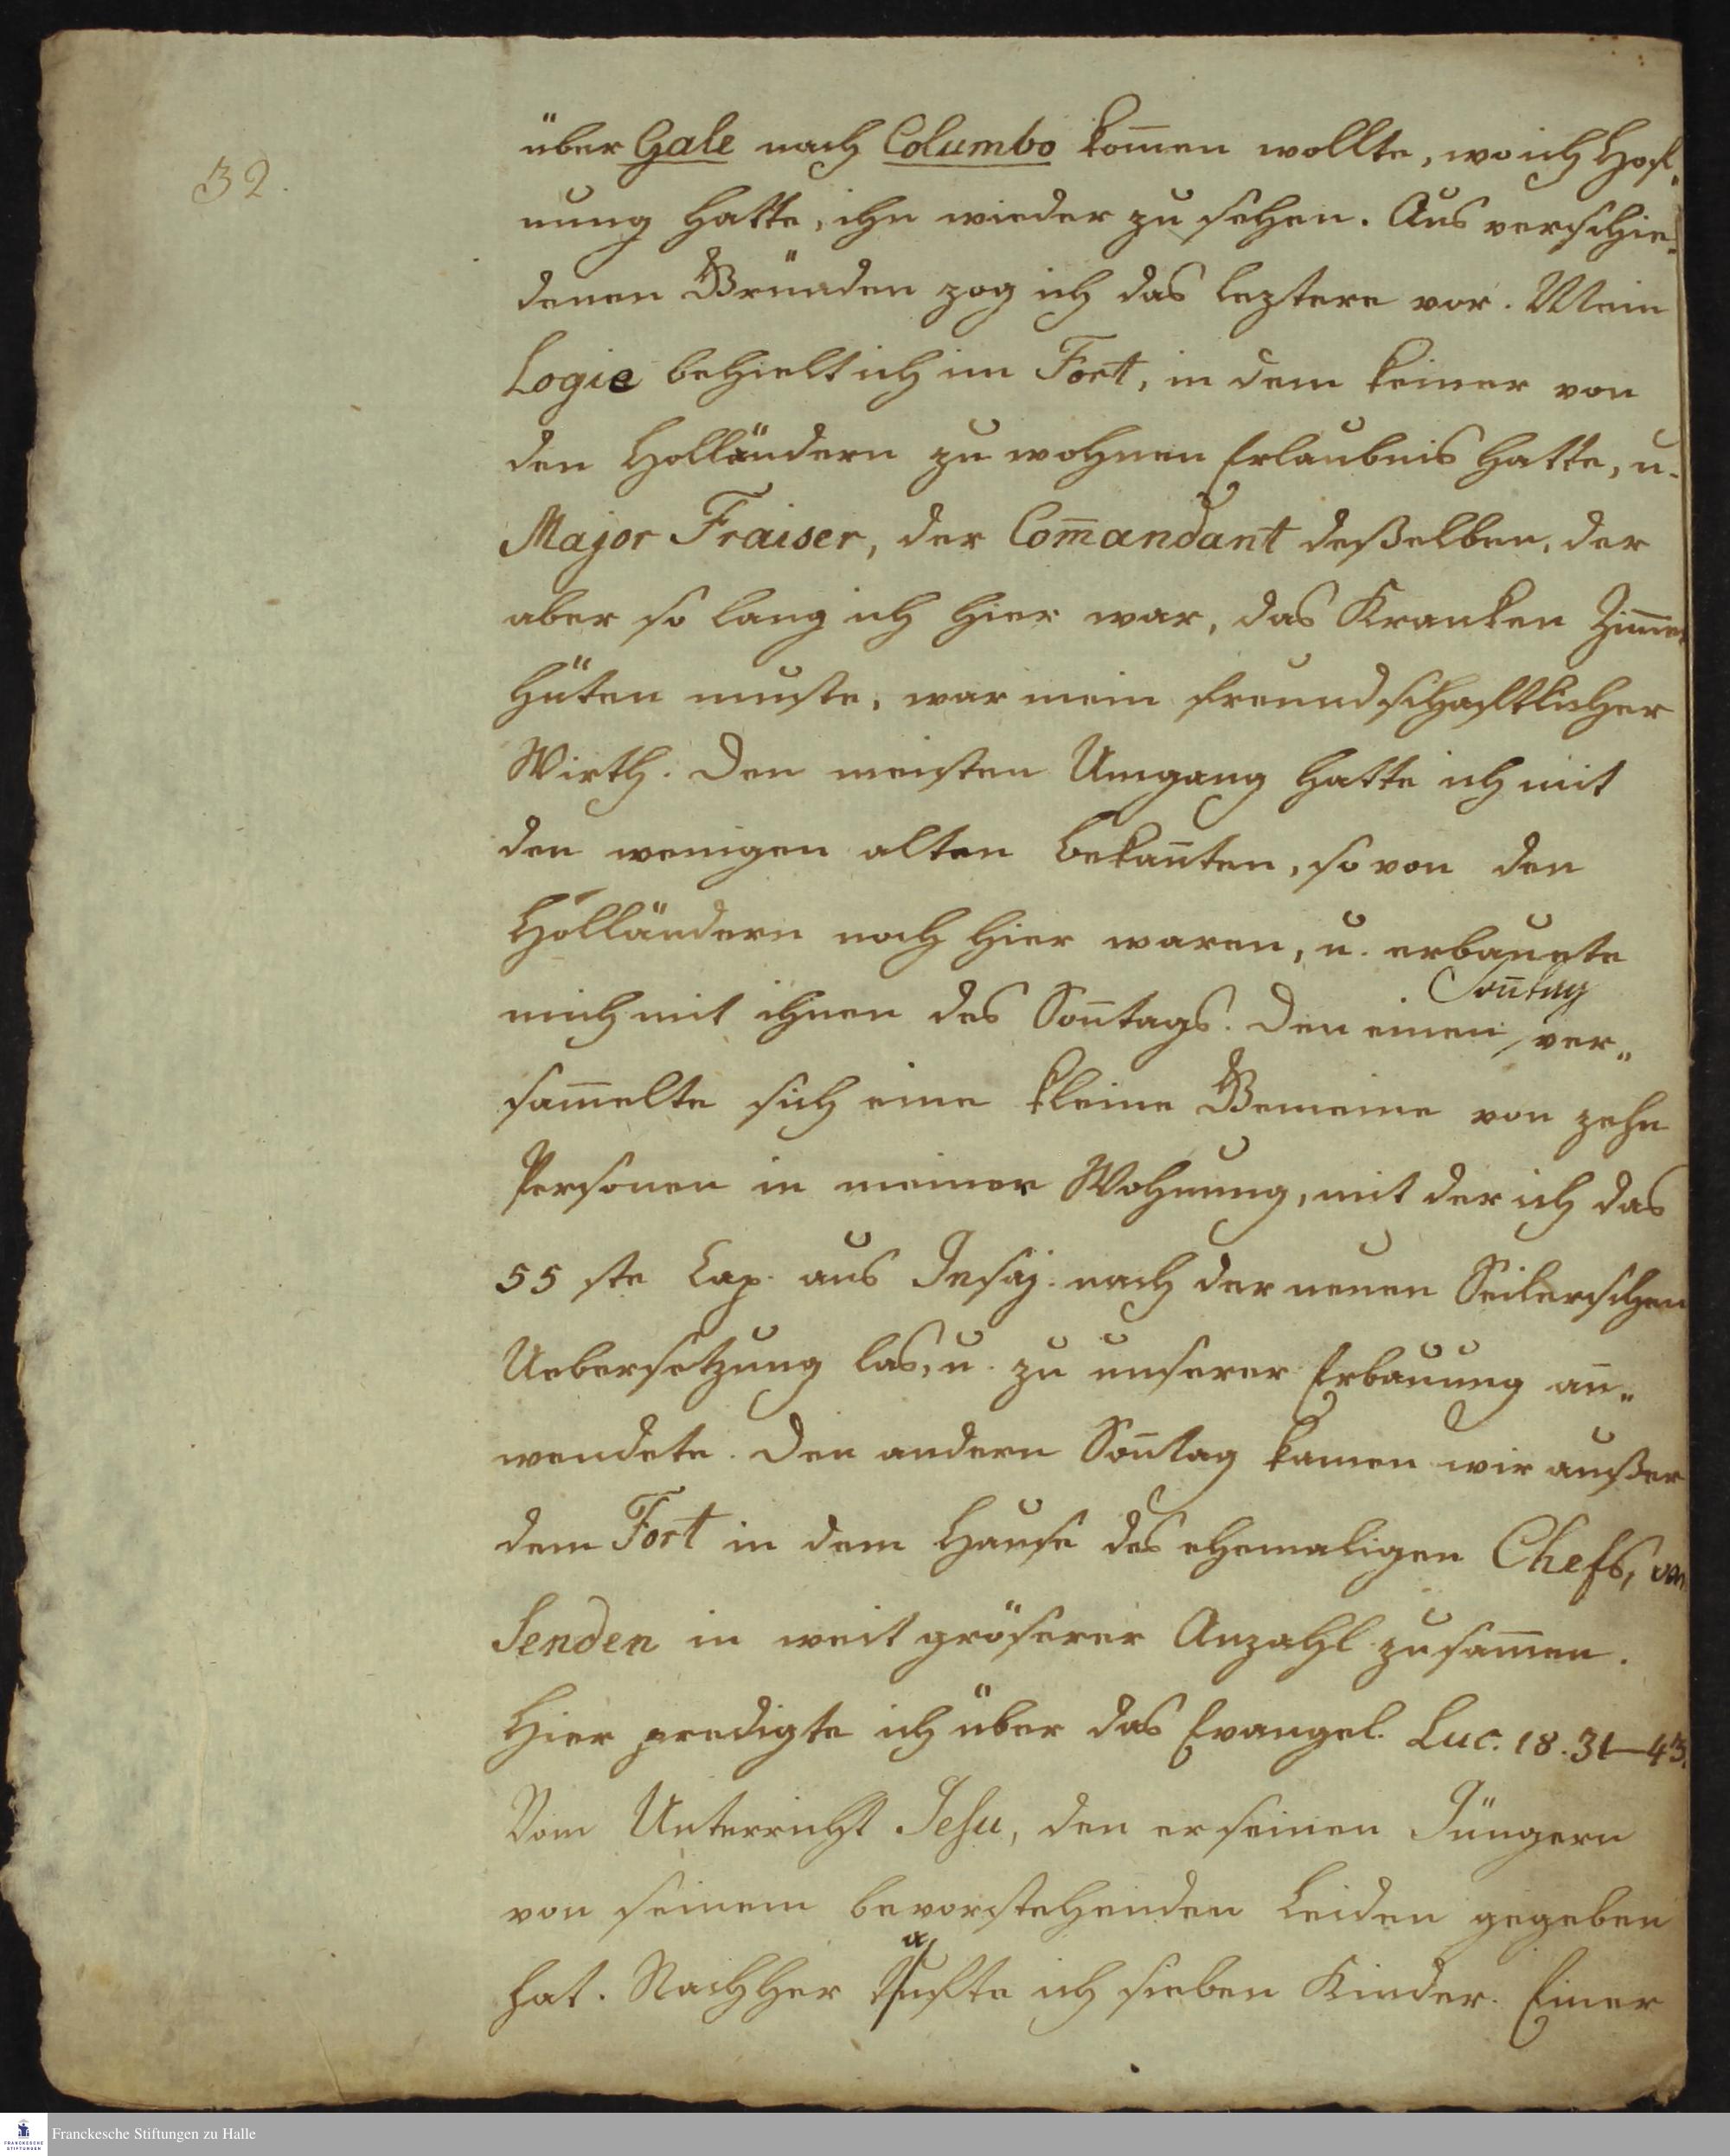 32.
über Gale nach Columbo kom̄en wollte, wo ich Hof„
nung hatte, ihn wieder zu sehen. Aus verschie„
denen Gründen zog ich das leztere vor. Mein
Logie behielt ich im Fort, in dem keiner von
den Holländern zu wohnen Erlaubnis hatte, u.
Major Fraiser, der Com̄andant deßelben, der
aber so lang ich hier war, das Kranken Zim̄er
hüten muste, war mein freundschaftlicher
Wirth. Den meisten Umgang hatte ich mit
den wenigen alten Bekan̄ten, so von den
Holländern noch hier waren, u. erbauete
mich mit ihnen des Son̄tags. Den einen Son̄tag ver„
sam̄elte sich eine kleine Gemeine von zehn
Personen in meiner Wohnung, mit der ich das
55 ste Cap. aus Jesaj. nach der neuen Seilerschen
Uebersetzung las, u. zu unserer Erbauung an„
wendete. Den andern Son̄tag kamen wir außer
dem Fort in dem Hause des ehemaligen Chefs, von
Senden in weit gröserer Anzahl zusam̄en.
Hier predigte ich über das Evangel. Luc. 18. 31–43.
Vom Unterricht Jesu, den er seinen Jüngern
von seinem bevorstehenden Leiden gegeben
hat. Nachher taufte ich sieben Kinder. Einer
Franckesche Stiftungen zu Halle
FRANCKESCHE
STIFTUNGEN